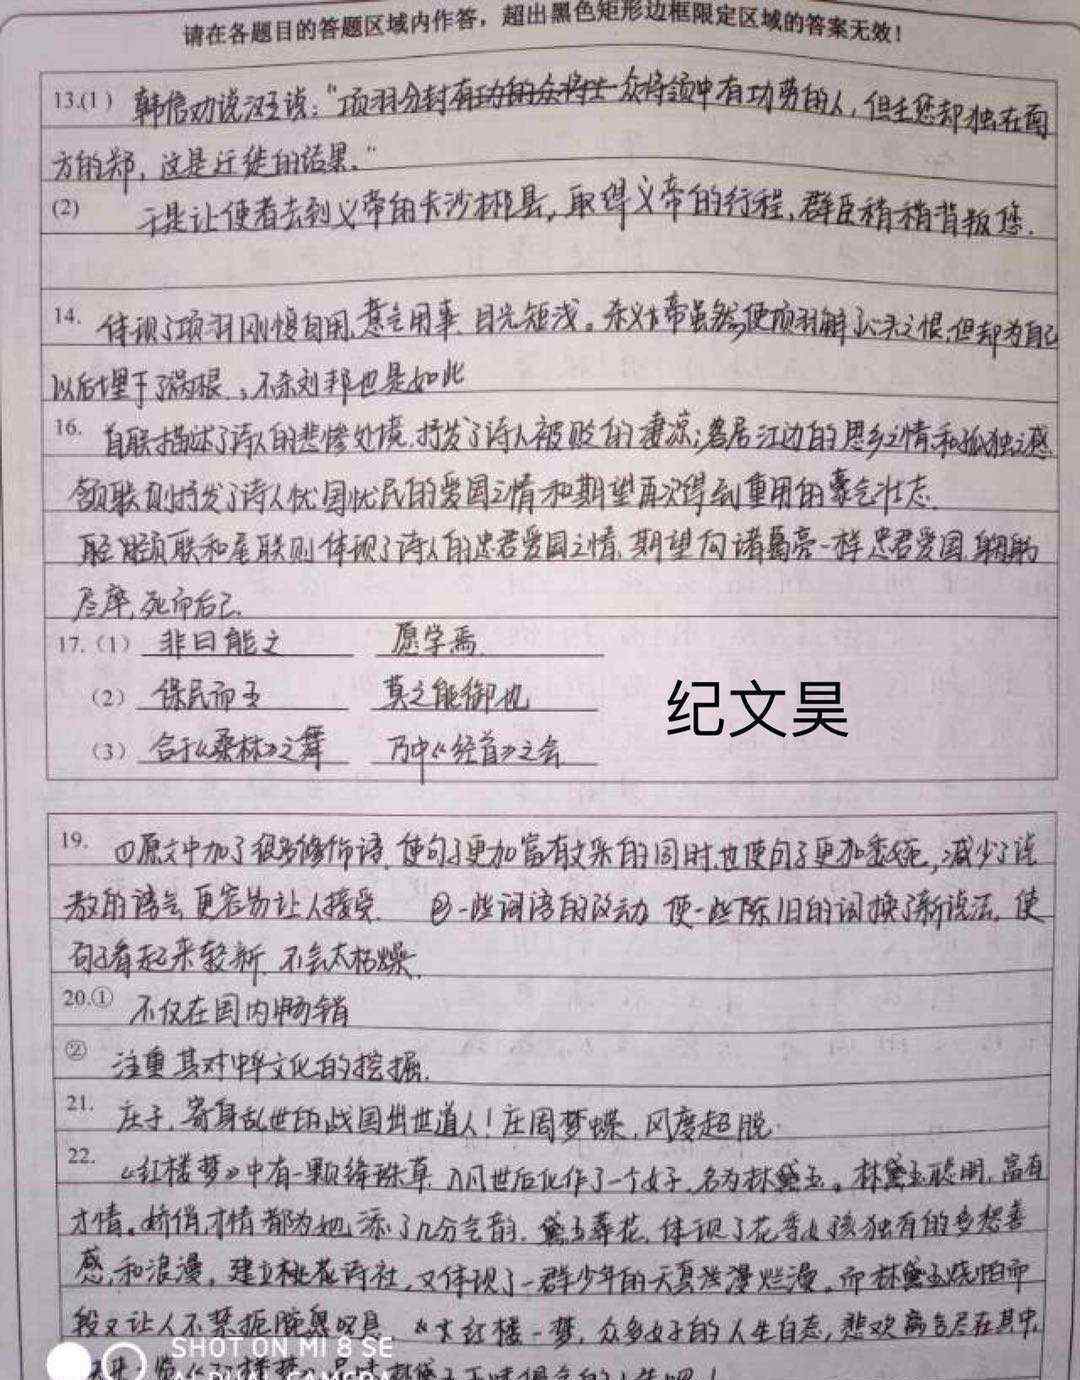 请在各题目的答题区域内作答，超出黑色矩形边框限定区域的答案无效！
13.(1) 韩信劝说汉王说："项羽分封有功的众将士众将领中有功劳的人，但大王您却独在南
方的郑，这是迁徙的结果。"
(2) 于是让使者去到义帝的长沙郴县，取得义帝的行程，群臣稍稍背叛僬.
14. 体现了项羽刚愎自用，意气用事 目光短浅。杀义帝虽然使项羽解了心头之恨，但却为自己
以后埋下了祸根，不杀刘邦也是如此
16. 首联描述了诗人的悲惨处境，抒发了诗人被贬的凄凉；客居江边的思乡之情和孤独之感
颔联则抒发了诗人忧国忧民的爱国之情和期望再次得到重用的豪气壮志.
颈联和尾联则体现了诗人的忠君爱国之情，期望向诸葛亮一样忠君爱国，鞠躬
尽瘁，死而后已.
17.（1）非曰能之 愿学焉.
（2）保民而王 莫之能御也
（3）合于《桑林》之舞 乃中《经首》之会
纪文昊
19. ①原文中加了很多修饰语，使句子更加富有文采的同时，也使句子更加委婉，减少了说
教的语气，更容易让人接受. ②一些词语的改动 使一些陈旧的词换了新说法，使
句子看起来较新，不会太枯燥.
20.① 不仅在国内畅销
② 注重其对中华文化的挖掘.
21. 庄子，寄身乱世的战国出世道人！庄周梦蝶，风度超脱.
22. 《红楼梦》中有一颗绛珠草，入凡世后化作了一个女子，名为林黛玉。林黛玉聪明，富有
才情。娇俏，才情都为她添了几分色彩. 黛玉葬花，体现了花季女孩独有的多愁善
感，和浪漫。建立桃花诗社，又体现了一群少年的天真浪漫烂漫。而林黛玉烧帕而
段又让人不禁扼腕叹息. 大红楼一梦，众多女子的人生百态，悲欢离合尽在其中
SHOT ON MI 8 SE
AI DUAL CAMERA